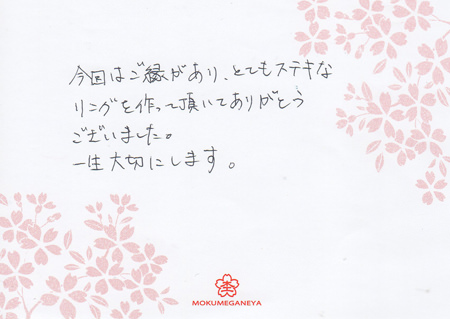 今回はご縁があり、とてもステキな
リングを作って頂いてありがとう
ございました。
一生大切にします。
MOKUMEGANEYA